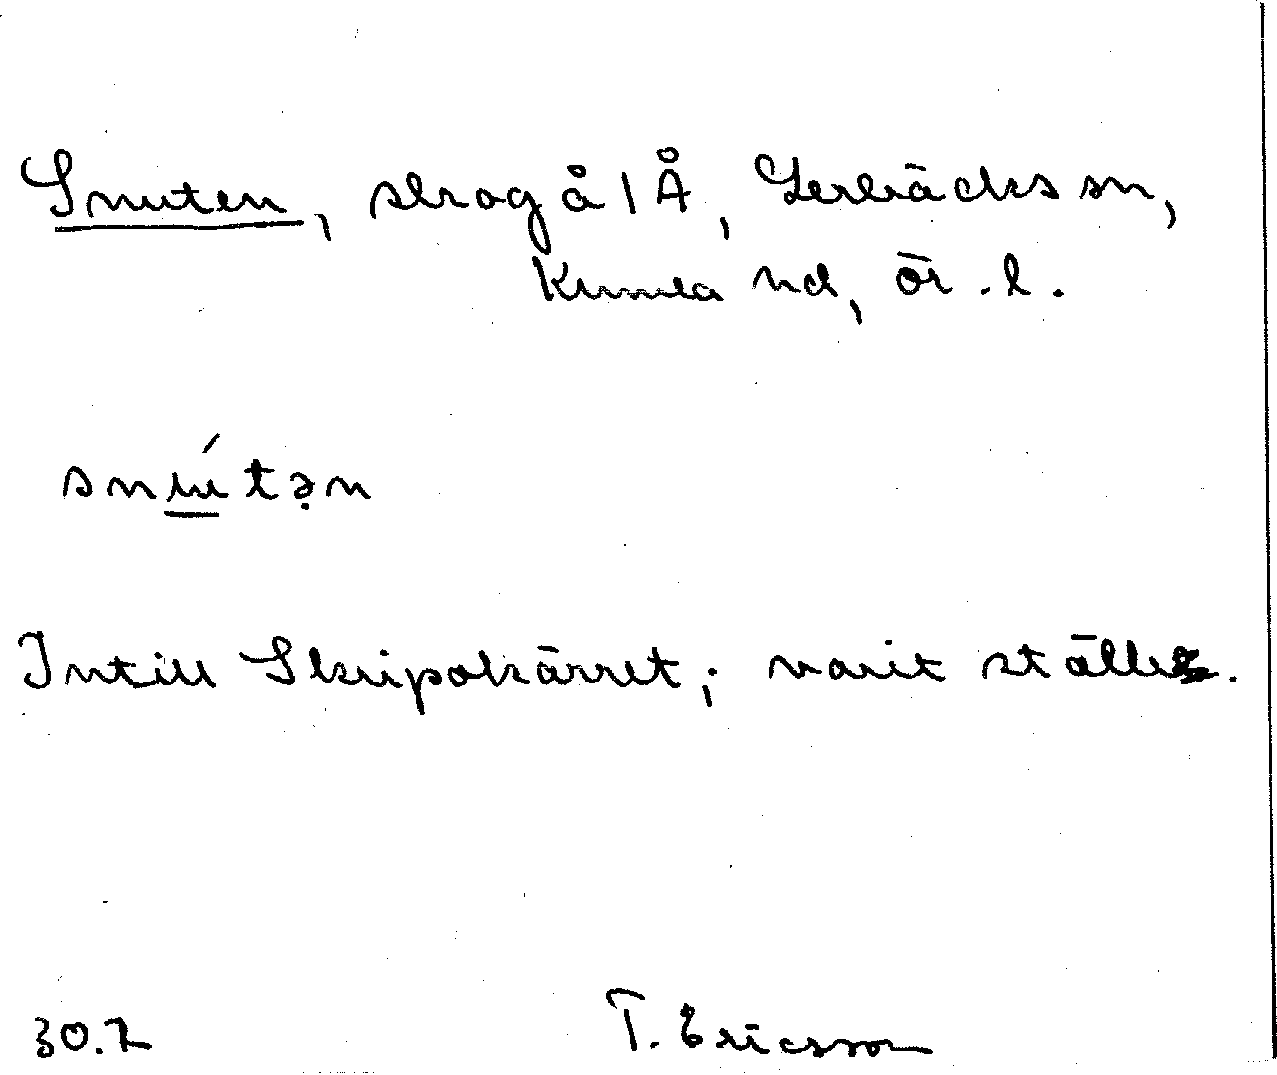 Snuten, skog å 1 Å, Lerbäcks sn,
Kumla hd, Ör. l.
snú̲tə̣n
Intill Skripokärret; varit ställe.
30.7 T. Ericsson